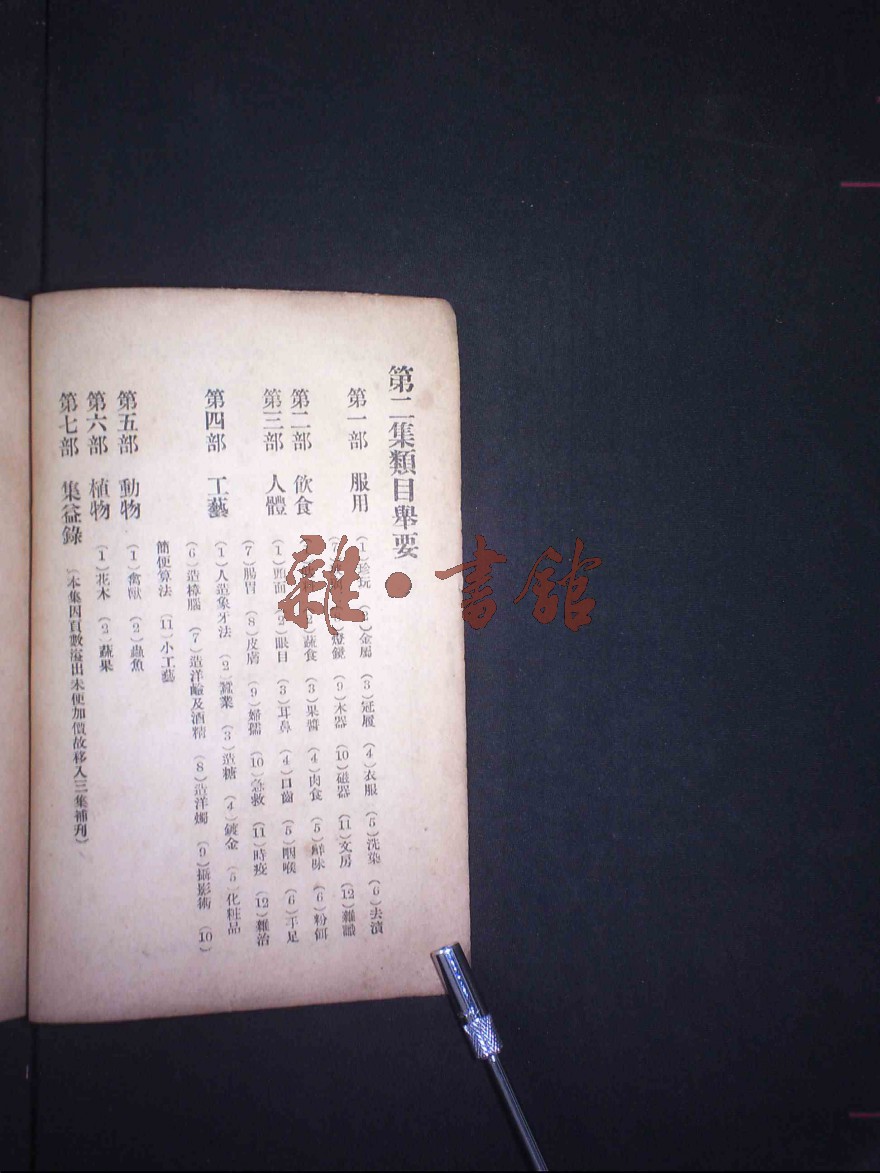 第二集類目舉要
第一部 服用 (1)珍玩 (2)金屬 (3)冠履 (4)衣服 (5)洗染 (6)去漬
(7) 燈鏡 (9)木器 (10)磁器 (11)文房 (12)雜識
第二部 飲食 蔬食 (3)果醬 (4)肉食 (5)鮮味 (6)粉餌
第三部 人體 (1)頭面 (2)眼目 (3)耳鼻 (4)口齒 (5)咽喉 (6)手足
(7)腸胃 (8)皮膚 (9)婦孺 (10)急救 (11)時疫 (12)雜治
第四部 工藝 (1)人造象牙法 (2)蠶業 (3)造糖 (4)鍍金 (5)化粧品
(6)造樟腦 (7)造洋鹼及酒精 (8)造洋燭 (9)攝影術 (10)
簡便算法 (11)小工藝
第五部 動物 (1)禽獸 (2)蟲魚
第六部 植物 (1)花木 (2)蔬果
第七部 集益錄 (本集因頁數溢出未便加價故移入三集補刋)
雜·書館